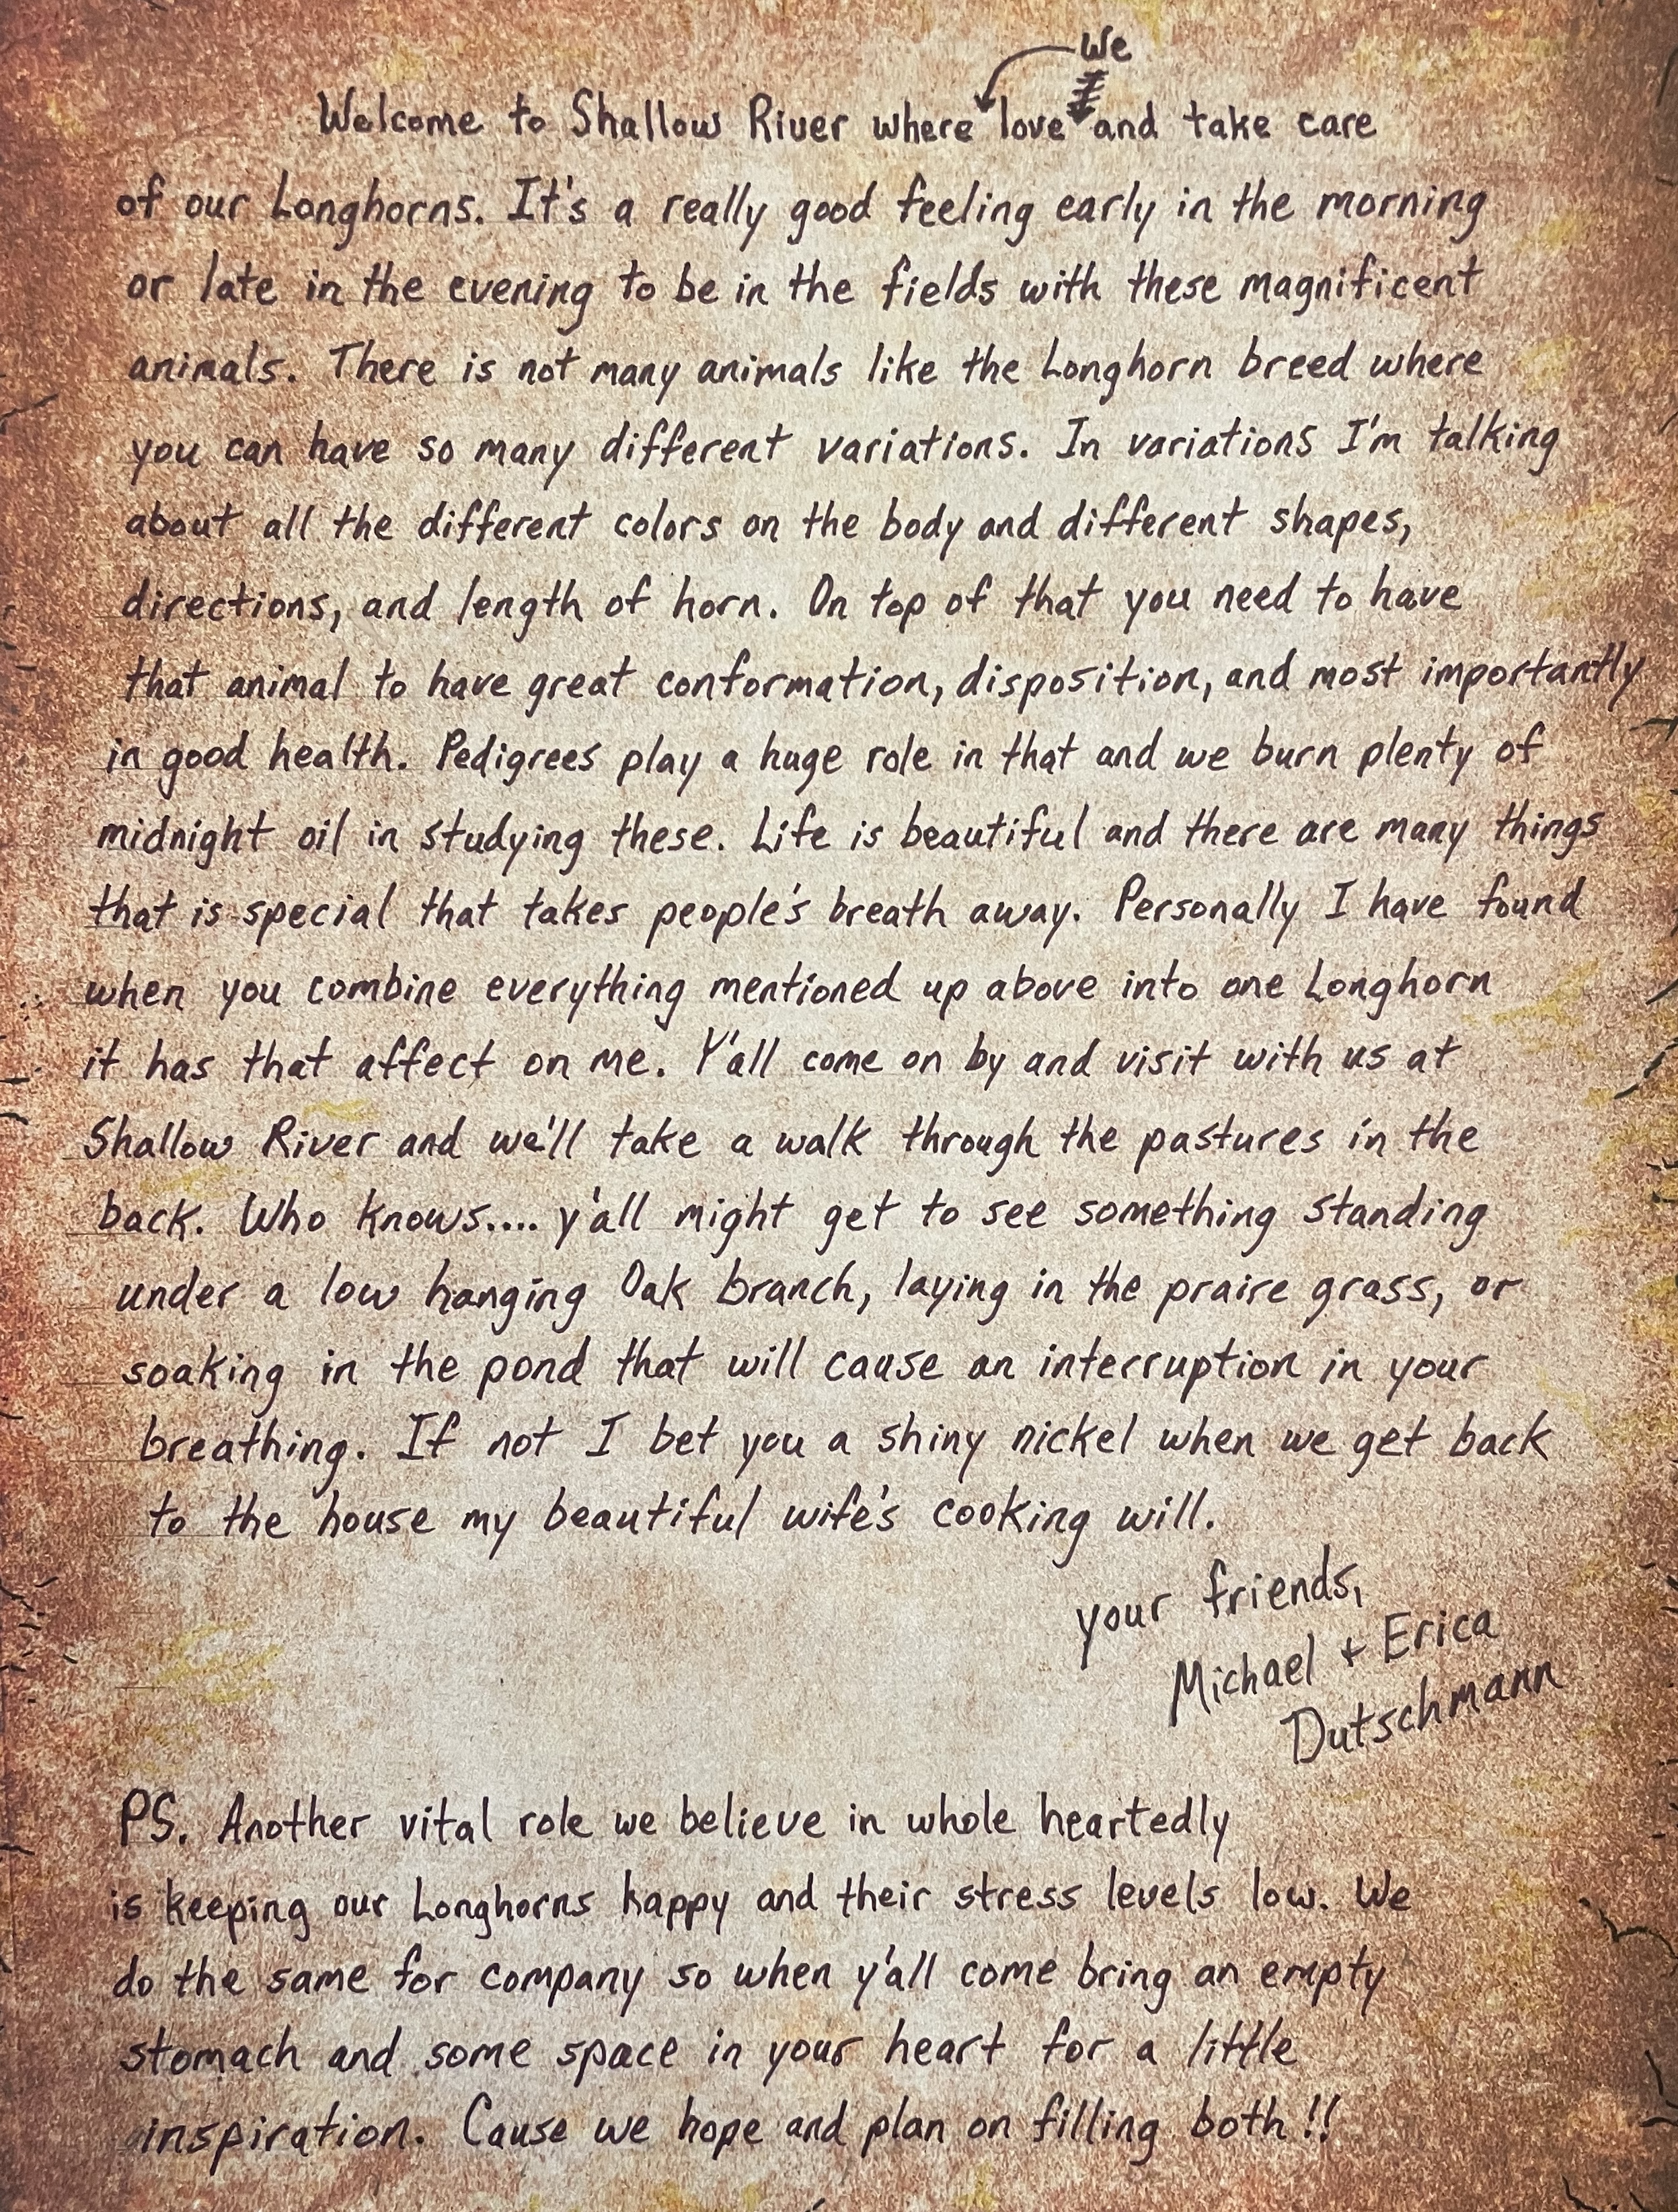 We
Welcome to Shallow River where love and take care
of our Longhorns. It's a really good feeling early in the morning
or late in the evening to be in the fields with these magnificent
animals. There is not many animals like the Longhorn breed where
you can have so many different variations. In variations I'm talking
about all the different colors on the body and different shapes,
directions, and length of horn. On top of that you need to have
that animal to have great conformation, disposition, and most importantly
in good health. Pedigrees play a huge role in that and we burn plenty of
midnight oil in studying these. Life is beautiful and there are many things
that is special that takes people's breath away. Personally I have found
when you combine everything mentioned up above into one Longhorn
it has that affect on me. Y'all come on by and visit with us at
Shallow River and we'll take a walk through the pastures in the
back. Who knows.... y'all might get to see something standing
under a low hanging Oak branch, laying in the praire grass, or
soaking in the pond that will cause an interruption in your
breathing. If not I bet you a shiny nickel when we get back
to the house my beautiful wife's cooking will.
your friends,
Michael + Erica
Dutschmann
PS. Another vital role we believe in whole heartedly
is keeping our Longhorns happy and their stress levels low. We
do the same for company so when y'all come bring an empty
stomach and some space in your heart for a little
inspiration. Cause we hope and plan on filling both!!